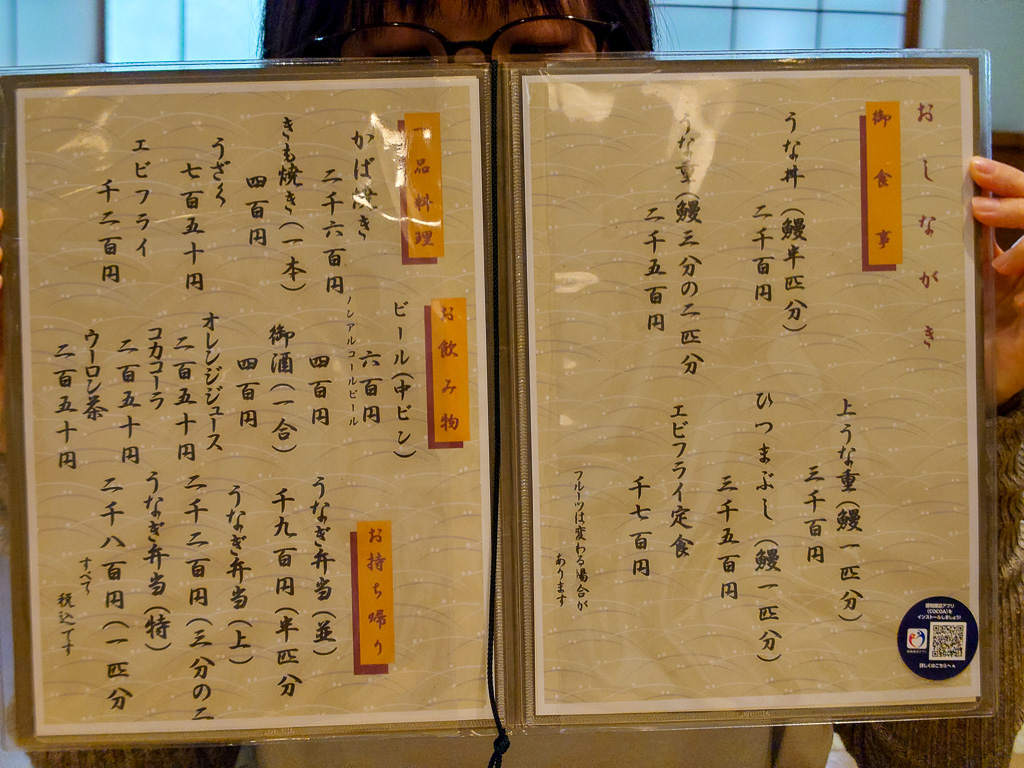 おしながき
御食事
うな丼(鰻半匹分)
二千百円
うな重(鰻三分の二匹分)
二千五百円
上うな重(鰻一匹分)
三千百円
ひつまぶし(鰻一匹分)
三千五百円
エビフライ定食
千七百円
フルーツは変わる場合が
あります
接触確認アプリ
(COCOA)を
インストールしましょう!
詳しくはこちらへ
一品料理
かば焼き
二千六百円
きも焼き(一本)
四百円
うざく
七百五十円
エビフライ
千二百円
お飲み物
ビール(中ビン)
六百円
ノンアルコールビール
四百円
御酒(一合)
四百円
オレンジジュース
二百五十円
コカコーラ
二百五十円
ウーロン茶
二百五十円
お持ち帰り
うなぎ弁当(並)
千九百円(半匹分
うなぎ弁当(上)
二千二百円(三分の二
うなぎ弁当(特)
二千八百円(一匹分
すべて
税込です